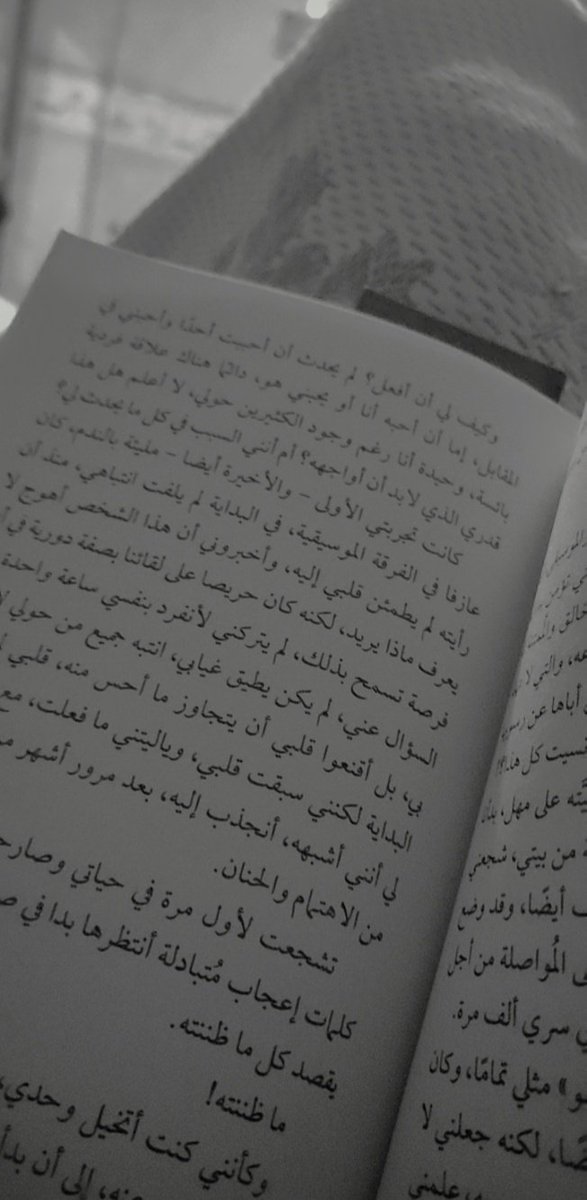 وكيف لي أن أفعل؟ لم يحدث أن أحببت أحدًا وأحبني في
المقابل، إما أن أحبه أنا أو يحبني هو، دائما هناك علاقة فردية
بائسة، وحيدة أنا رغم وجود الكثيرين حولي، لا أعلم هل هذا
قدري الذي لابد أن أواجهه؟ أم أنني السبب في كل ما يحدث لي؟
كانت تجربتي الأول - والأخيرة أيضا - مليئة بالندم، كان
عازفا في الفرقة الموسيقية، في البداية لم يلفت انتباهي، منذ أن
رأيته لم يطمئن قلبي إليه، وأخبروني أن هذا الشخص أهوج لا
يعرف ماذا يريد، لكنه كان حريصا على لقائنا بصفة دورية في
فرصة تسمح بذلك، لم يتركني لأنفرد بنفسي ساعة واحدة
السؤال عني، لم يكن يطيق غيابي، انتبه جميع من حولي
بي، بل أقنعوا قلبي أن يتجاوز ما أحس منه، قلبي
البداية لكنني سبقت قلبي، وياليتني ما فعلت، مع
لي أنني أشبهه، أنجذب إليه، بعد مرور أشهر
من الاهتمام والحنان.
تشجعت لأول مرة في حياتي وصارحـ
كلمات إعجاب مُتبادلة أنتظرها بدا في
يقصد كل ما ظننته.
ما ظننته!
وكأنني كنت أتخيل وحدي،
إلى أن بدأ
أباها عن
نسيت كل هذا؟!
على مهل، بدأن
من بيتي، شجعني
أيضًا، وقد وضع
المُواصلة من أجل
سري ألف مرة.
مثلي تمامًا، وكان
لكنه جعلني لا
علمني